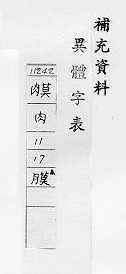 補充資料
異體字表
11242
⿰肉莫
肉
11
17
膜▲